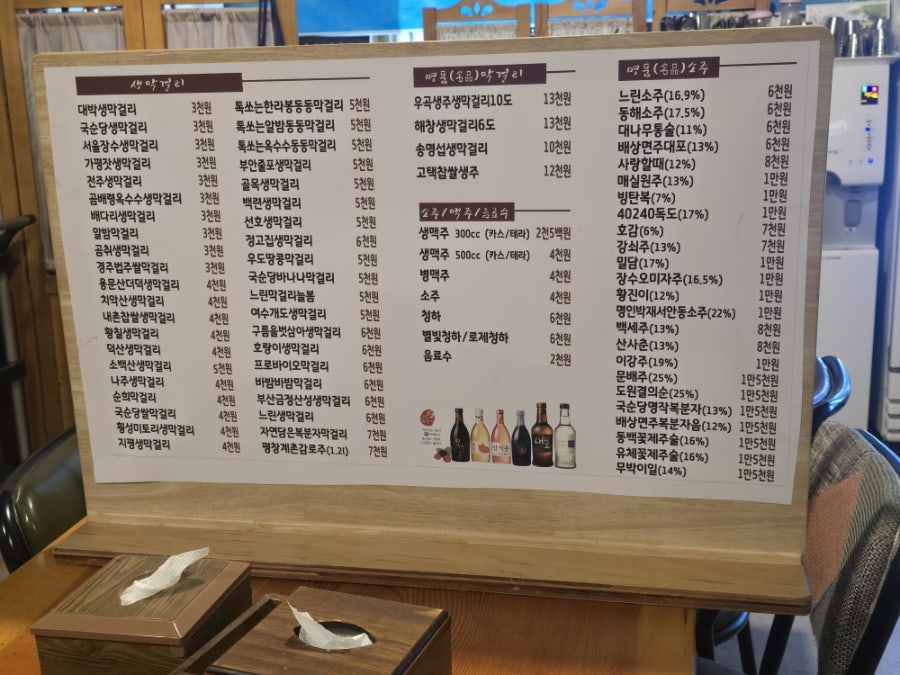 생막걸리
대박생막걸리 3천원
국순당생막걸리 3천원
서울장수생막걸리 3천원
가평잣생막걸리 3천원
전주생막걸리 3천원
곰배령옥수수생막걸리 3천원
배다리생막걸리 3천원
알밤막걸리 3천원
곰취막걸리 3천원
경주법주쌀막걸리 3천원
용문산더덕생막걸리 4천원
치악산생막걸리 4천원
내촌찹쌀생막걸리 4천원
황칠생막걸리 4천원
덕산생막걸리 4천원
소백산생막걸리 5천원
나주생막걸리 4천원
순희막걸리 4천원
국순당쌀막걸리 4천원
횡성미토리생막걸리 4천원
지평생막걸리 4천원
톡쏘는한라봉동동막걸리 5천원
톡쏘는알밤동동막걸리 5천원
톡쏘는옥수수동동막걸리 5천원
부안줄포생막걸리 5천원
골목생막걸리 5천원
백련생막걸리 5천원
선호생막걸리 5천원
정고집생막걸리 6천원
우도땅콩막걸리 5천원
국순당바나나막걸리 5천원
느린막걸리늘봄 5천원
여수개도생막걸리 5천원
구름을벗삼아생막걸리 6천원
호랑이생막걸리 6천원
프로바이오막걸리 6천원
바밤바밤막걸리 6천원
부산금정산성생막걸리 6천원
느린생막걸리 6천원
자연담은복분자막걸리 7천원
평창계촌감로주(1.2l) 7천원
명품(名品)막걸리
우곡생주생막걸리10도 13천원
해창생막걸리6도 13천원
송명섭생막걸리 10천원
고택찹쌀생주 12천원
소주/맥주/음료수
생맥주 300cc (카스/테라) 2천5백원
생맥주 500cc (카스/테라) 4천원
병맥주 4천원
소주 4천원
청하 6천원
별빛청하/로제청하 6천원
음료수 2천원
명품(名品)소주
느린소주(16.9%) 6천원
동해소주(17.5%) 6천원
대나무통술(11%) 6천원
배상면주대포(13%) 6천원
사랑할때(12%) 8천원
매실원주(13%) 1만원
빙탄복(7%) 1만원
40240독도(17%) 1만원
호감(6%) 7천원
강쇠주(13%) 7천원
밀담(17%) 1만원
장수오미자주(16.5%) 1만원
황진이(12%) 1만원
명인박재서안동소주(22%) 1만원
백세주(13%) 8천원
산사춘(13%) 8천원
이강주(19%) 1만원
문배주(25%) 1만5천원
도원결의순(25%) 1만5천원
국순당명작복분자(13%) 1만5천원
배상면주복분자음(12%) 1만5천원
동백꽃제주술(16%) 1만5천원
유채꽃제주술(16%) 1만5천원
무박이일(14%) 1만5천원